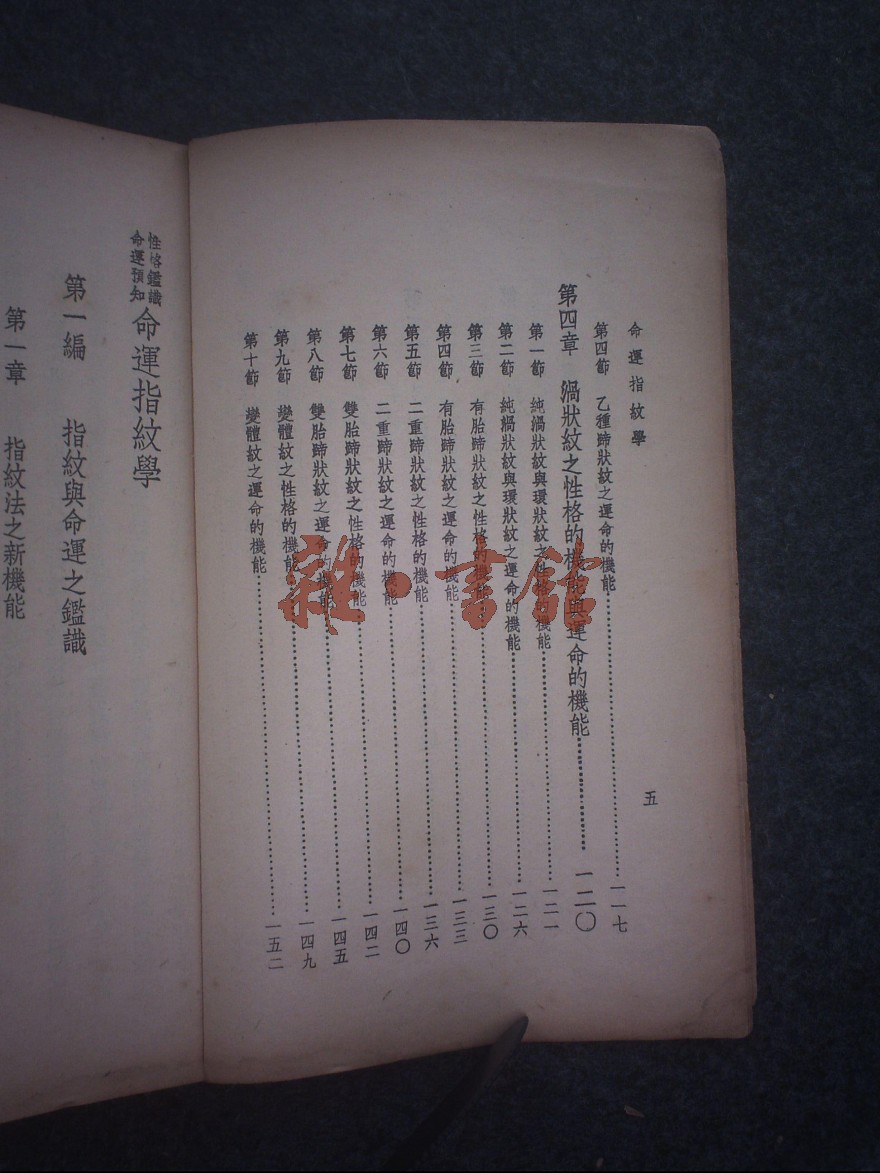 命運指紋學
五
第四節 乙種蹄狀紋之運命的機能 一一七
第四章 渦狀紋之性格的機能與運命的機能 一二〇
第一節 純渦狀紋與環狀紋之性格的機能 一二一
第二節 純渦狀紋與環狀紋之運命的機能 一二六
第三節 有胎蹄狀紋之性格的機能 一三〇
第四節 有胎蹄狀紋之運命的機能 一三三
第五節 二重蹄狀紋之性格的機能 一三六
第六節 二重蹄狀紋之運命的機能 一四〇
第七節 雙胎蹄狀紋之性格的機能 一四二
第八節 雙胎蹄狀紋之運命的機能 一四五
第九節 變體紋之性格的機能 一四九
第十節 變體紋之運命的機能 一五二
性格鑑識
命運預知
命運指紋學
第一編 指紋與命運之鑑識
第一章 指紋法之新機能
雜·書館